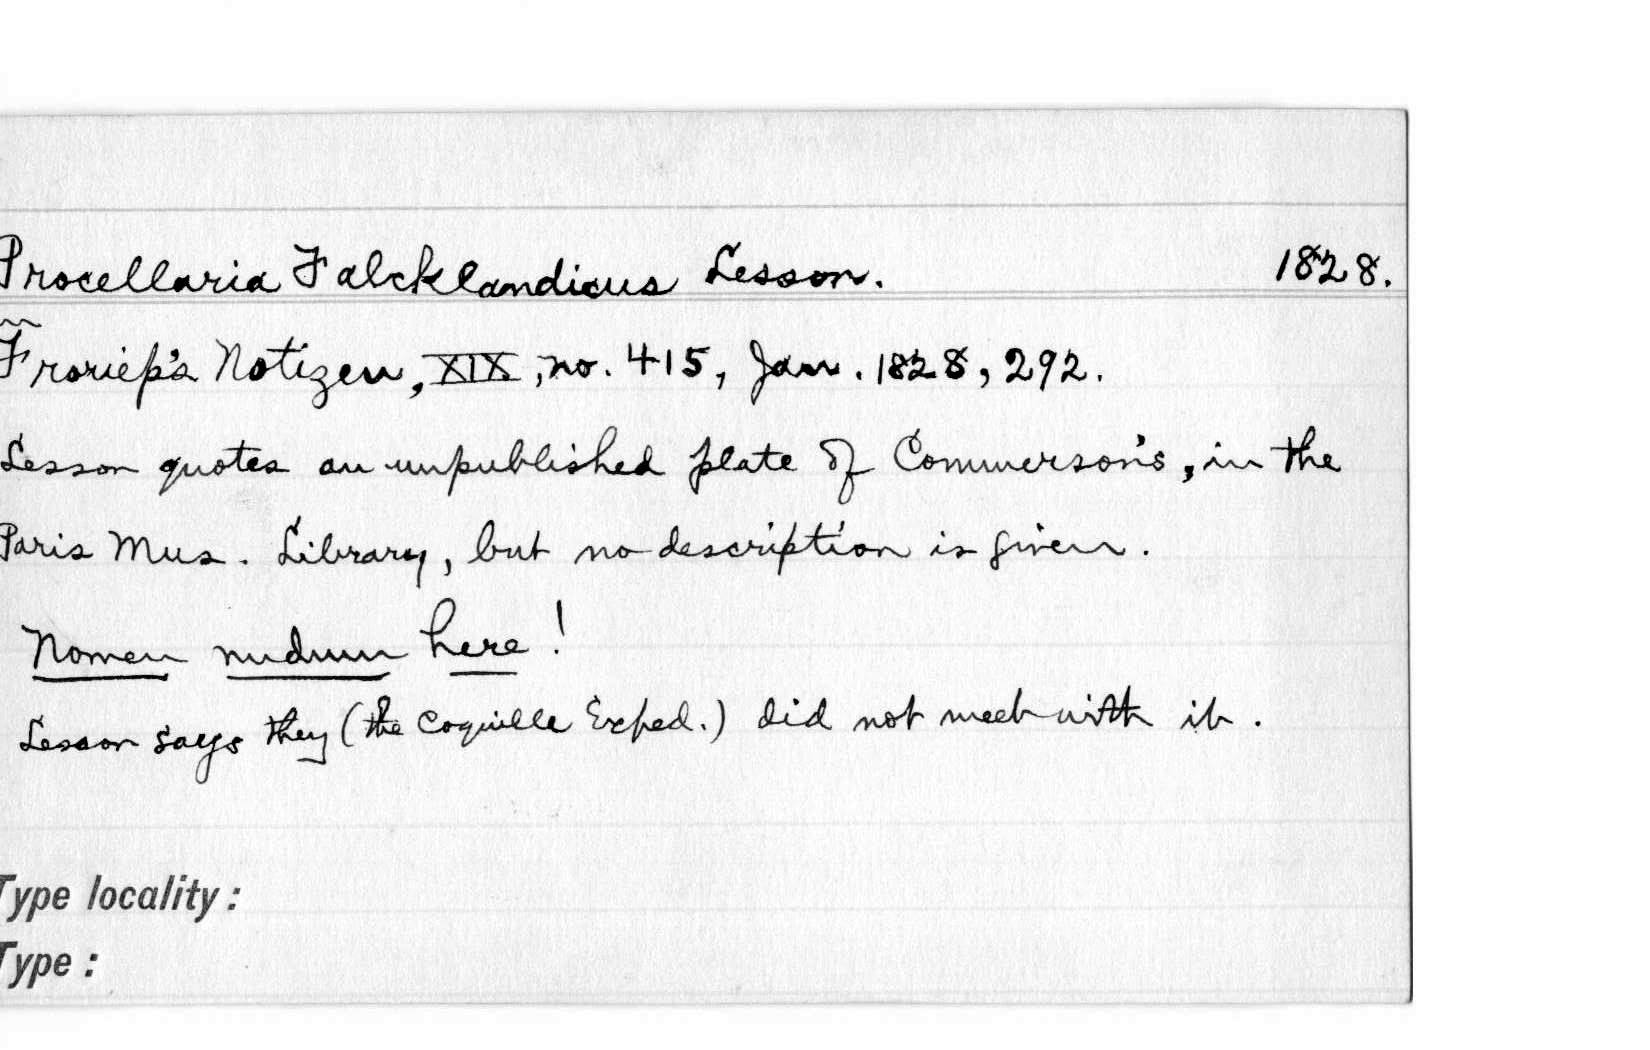 Procellaria Falcklandicus Lesson. 1828.
Froriep's Notizen, XIX, no. 415, Jan. 1828, 292.
Lesson quotes an unpublished plate of Commerson's, in the
Paris Mus. Library, but no description is given.
Nomen nudum here!
Lesson says they (the Coquille Exped.) did not meet with it.
Type locality:
Type: